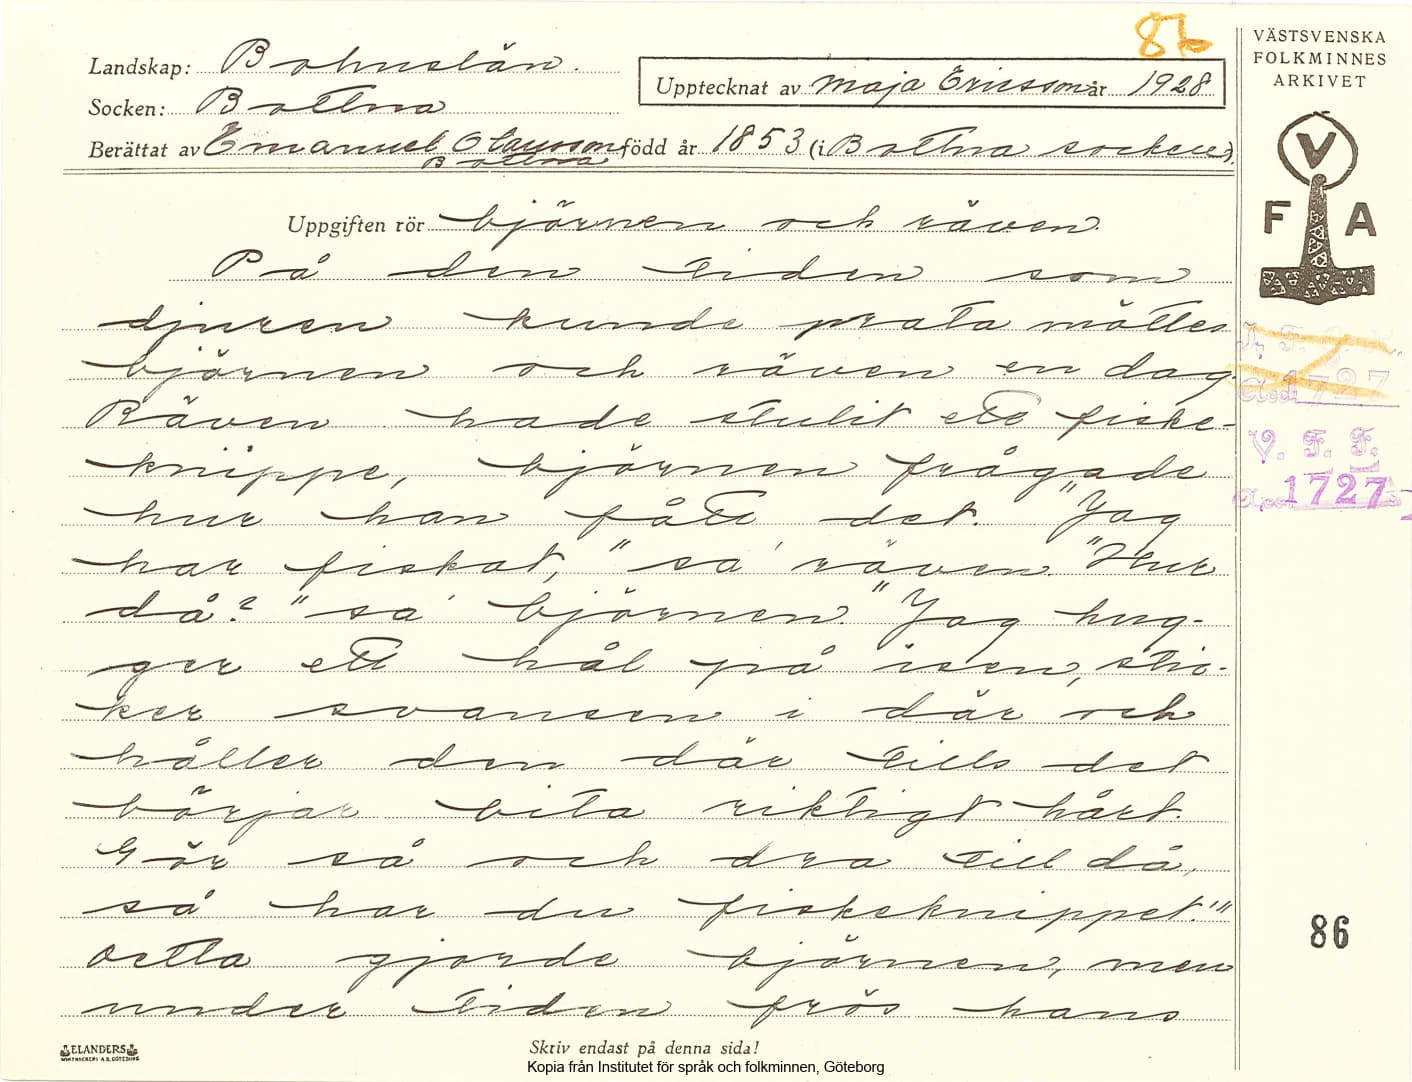 86
VÄSTSVENSKA
FOLKMINNES
ARKIVET
Landskap: Bohuslän.
Upptecknat av Maja Ericsson år 1928
Socken: Bottna
Berättat av Emanuel Olausson född år 1853 (i Bottna socken).
Bottna
V
F A
Uppgiften rör björnen och räven.
På den tiden som
djuren kunde prata möttes
björnen och räven en dag.
Räven hade stulit ett fiske-
knippe, björnen frågade
hur han fått det. "Jag
har fiskat," sa' räven. "Hur
då?" sa' björnen. "Jag hug-
ger ett hål på isen, stic-
ker svansen i där och
håller den där tills det
börjar bita riktigt hårt.
Gör så och dra till då,
så har du fiskeknippet!"
Detta gjorde björnen, men
under tiden frös hans
1727
V. F. F.
1727
86
ELANDERS
Skriv endast på denna sida!
Kopia från Institutet för språk och folkminnen, Göteborg